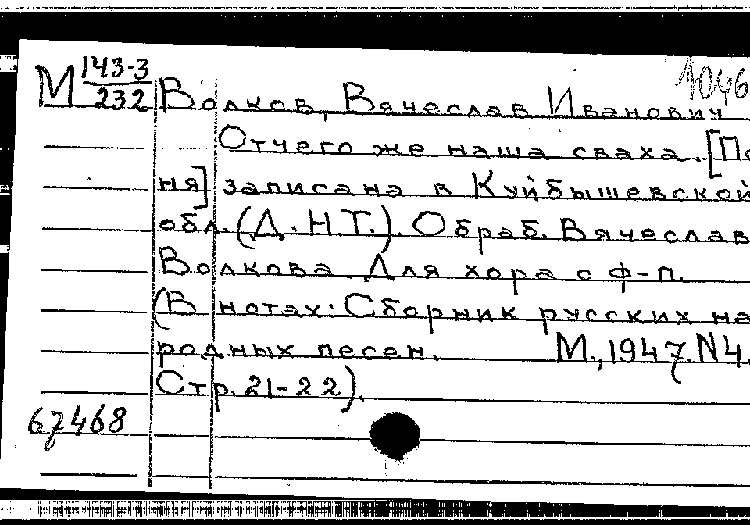 М 143-3/232 Волков, Вячеслав Иванович 1046
Отчего же наша сваха. [Пе
ня] записана в Куйбышевской
обл. (Д.НТ.). Обраб. Вячеслав
Волкова Для хора с ф-п.
(В нотах: Сборник русских на
родных песен. М., 1947. N4.
Стр. 21-22).
67468